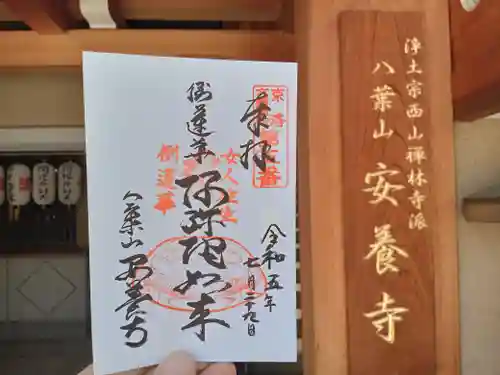 浄土宗西山禅林寺派
八葉山 安養寺
奉拝
令和五年
七月二十九日
倒蓮華
阿弥陀如来
八葉山 安養寺
倒蓮華
女人往生